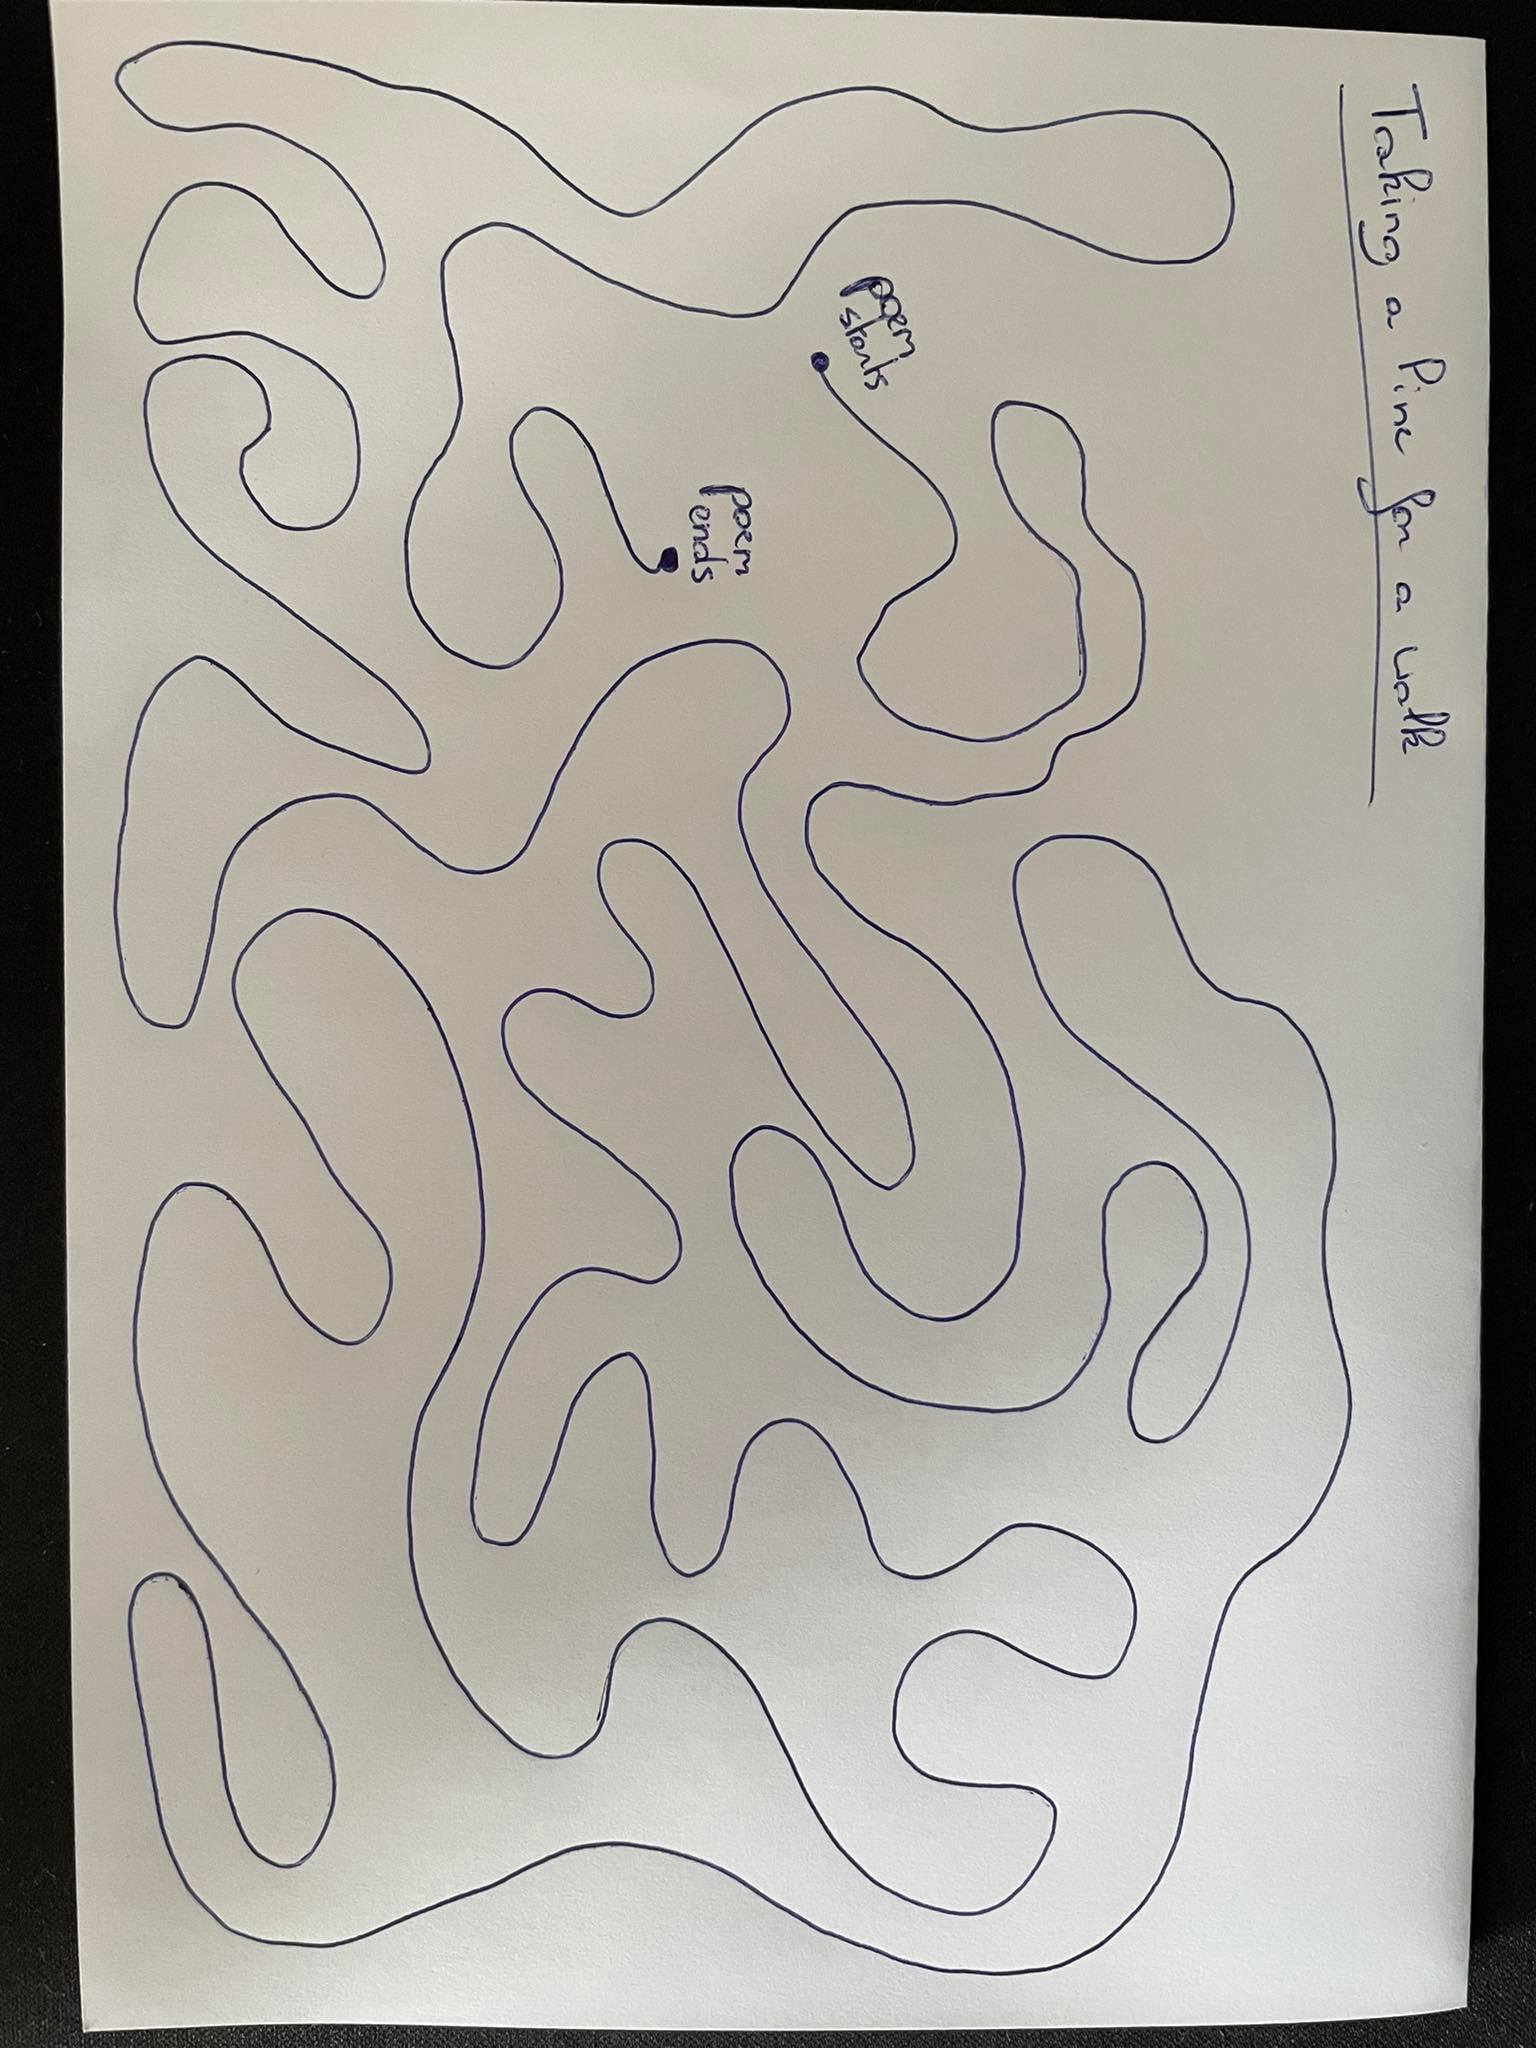 Taking a line for a walk
poem
starts
poem
ends